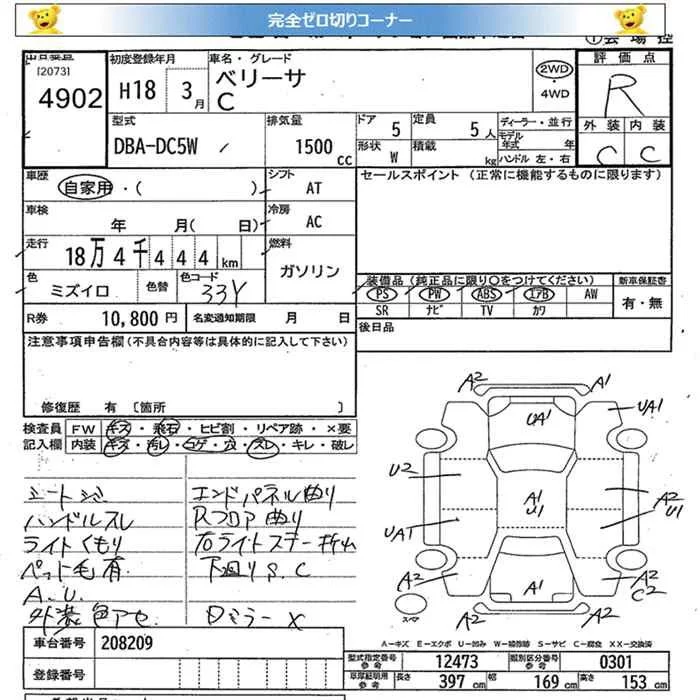 完全ゼロ切りコーナー
[2073]
4902
初度登録年月
H18 3月
車名・グレード
ベリーサ
C
2WD
・
4WD
評価点
R
外装 内装
C C
型式
DBA-DC5W
排気量
1500 cc
ドア 5
定員 5人
形状 W
積載 kg
ディーラー・並行
モデル年式 年
ハンドル 左・右
車歴
自家用・( )
シフト
AT
セールスポイント (正常に機能するものに限ります)
車検
年 月( 日)
冷房
AC
走行
18万4千444km
燃料
ガソリン
色
ミズイロ
色替
色コード
33Y
装備品(純正品に限り○をつけてください)
新車保証書
PS PW ABS エアB AW
SR ナビ TV カワ
有・無
R券
10,800 円
名変通知期限 月 日
後日品
注意事項申告欄(不具合内容等は具体的に記入して下さい)
修復歴 有 〔箇所 〕
検査員 FW キズ・飛石・ヒビ割・リペア跡・×要
記入欄 内装 キズ・汚レ・コゲ・穴・スレ・キレ・破レ
ハンドルスレ
ライトくもり
ペット毛有
A.U.
外装色アセ
エンドパネル曲り
Rフロア曲り
右ライトステー折れ
下廻りS.C
Dミラー×
A2 A1
UA1
UA1
U2
A1
U1
A2
U1
UA1
A2
A2
C2
A1
スペア
A2 A2
A=キズ E=エクボ U=凹み W=補修跡 S=サビ C=腐食 XX=交換済
車台番号 208209
登録番号
型式指定番号 参考 12473
類別区分番号 参考 0301
車庫証明用 参考
長さ 397 cm
幅 169 cm
高さ 153 cm